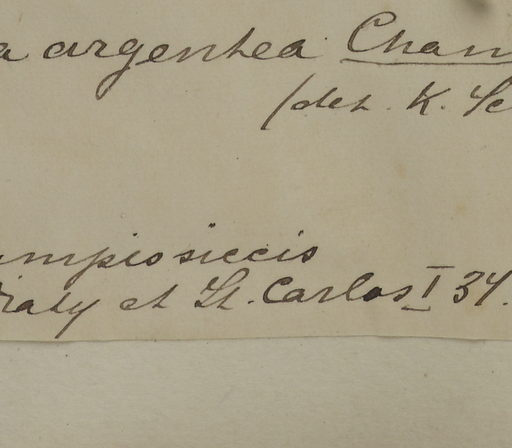 a argentea Cham
(det. K. Sc
ampis siccis
raty et St. Carlos I 34.